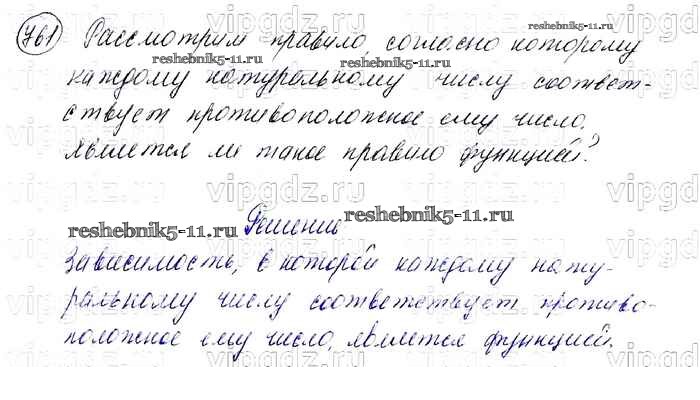 761 Рассмотрим правило, согласно которому
каждому натуральному числу соответ-
ствует противоположное ему число.
Является ли такое правило функцией?
Решение
Зависимость, в которой каждому нату-
ральному числу соответствует противо-
положное ему число, является функцией.
reshebnik5-11.ru
reshebnik5-11.ru
reshebnik5-11.ru
reshebnik5-11.ru
reshebnik5-11.ru
vipgdz.ru